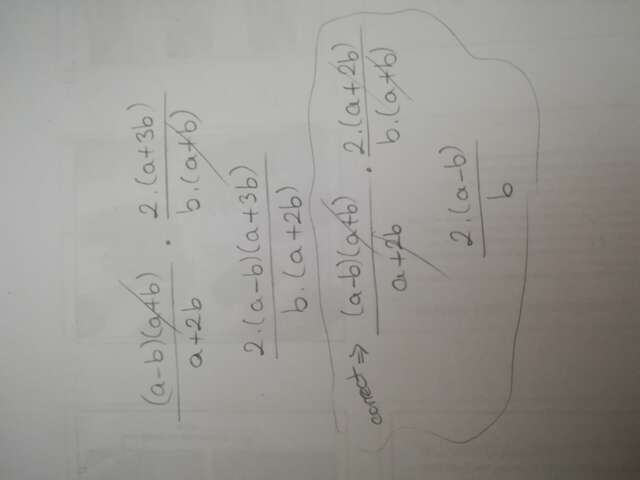 (a-b)(a+b) / a+2b . 2.(a+3b) / b.(a+b)
2.(a-b)(a+3b) / b.(a+2b)
correct ⇒ (a-b)(a+b) / a+2b . 2.(a+2b) / b.(a+b)
2.(a-b) / b